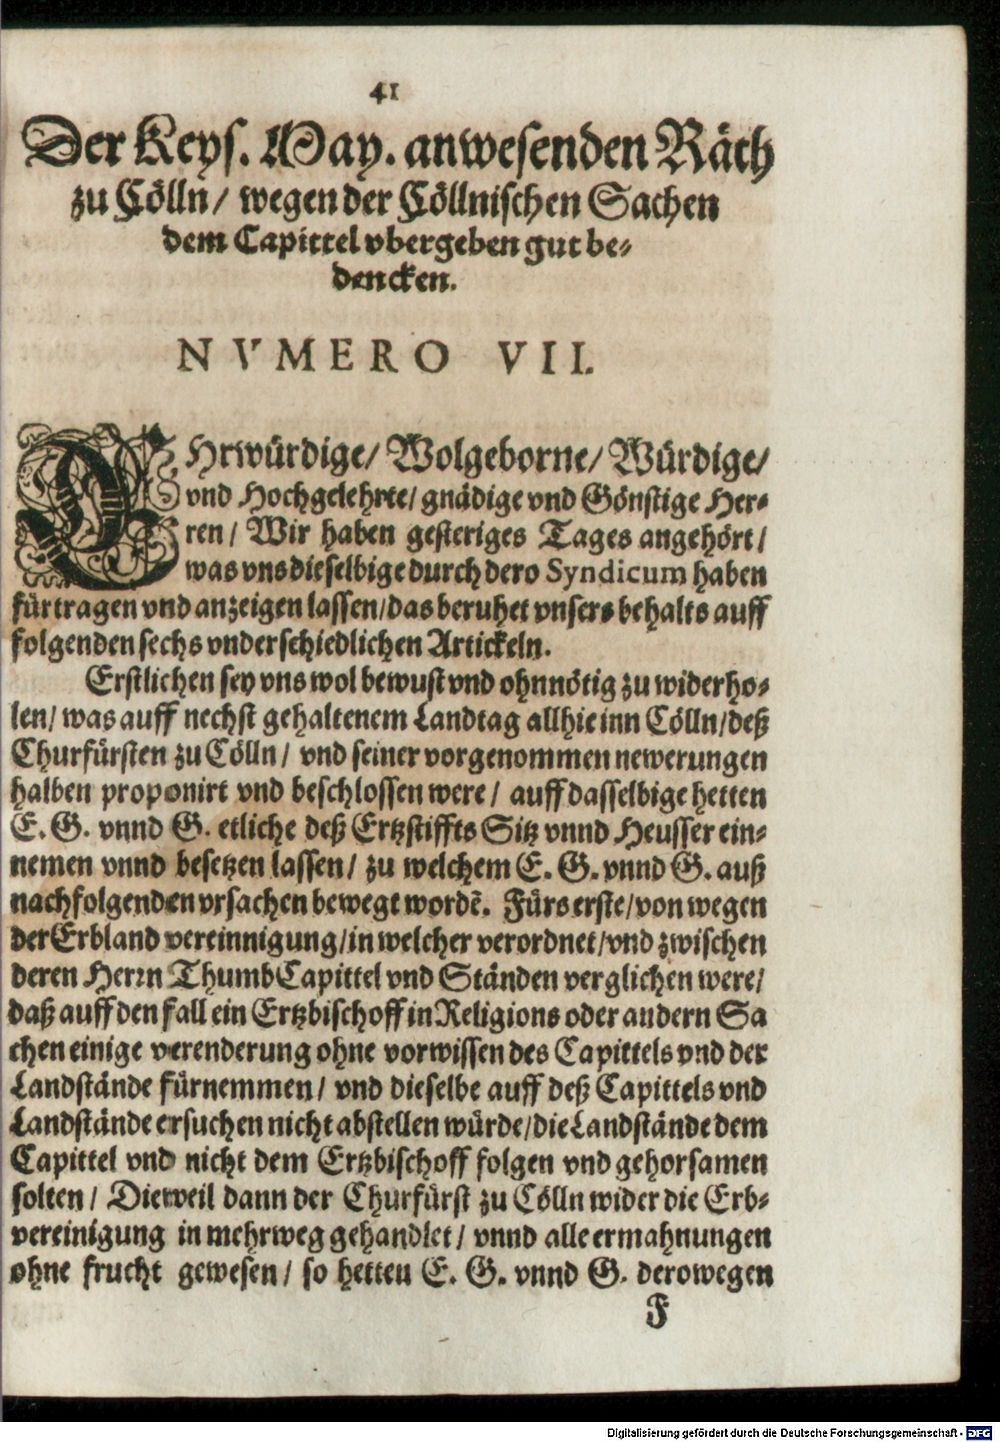 41
Der Keys. May. anwesenden Räth
zu Cölln/ wegen der Cöllnischen Sachen
dem Capittel vbergeben gut be-
dencken.
NVMERO VII.
EHrwürdige/ Wolgeborne/ Würdige/
vnd Hochgelehrte/ gnädige vnd Gönstige Her-
ren/ Wir haben gesteriges Tages angehört/
was vns dieselbige durch dero Syndicum haben
fürtragen vnd anzeigen lassen/ das beruhet vnsers behalts auff
folgenden sechs vnderschiedlichen Artickeln.
Erstlichen sey vns wol bewust vnd ohnnötig zu widerho-
len/ was auff nechst gehaltenem Landtag allhie inn Cölln/ deß
Churfürsten zu Cölln/ vnd seiner vorgenommen newerungen
halben proponirt vnd beschlossen were/ auff dasselbige hetten
E. G. vnnd G. etliche deß Ertzstiffts Sitz vnnd Heusser ein-
nemen vnnd besetzen lassen/ zu welchem E. G. vnnd G. auß
nachfolgenden vrsachen bewegt wordẽ. Fürs erste/ von wegen
der Erbland vereinnigung/ in welcher verordnet/ vnd zwischen
deren Herrn ThumbCapittel vnd Ständen verglichen were/
daß auff den fall ein Ertzbischoff in Religions oder andern Sa
chen einige verenderung ohne vorwissen des Capittels vnd der
Landstände fürnemmen/ vnd dieselbe auff deß Capittels vnd
Landstände ersuchen nicht abstellen würde/ die Landstände dem
Capittel vnd nicht dem Ertzbischoff folgen vnd gehorsamen
solten/ Dieweil dann der Churfürst zu Cölln wider die Erb-
vereinigung in mehrweg gehandlet/ vnnd alle ermahnungen
ohne frucht gewesen/ so hetten E. G. vnnd G. derowegen
F
Digitalisierung gefördert durch die Deutsche Forschungsgemeinschaft - DFG